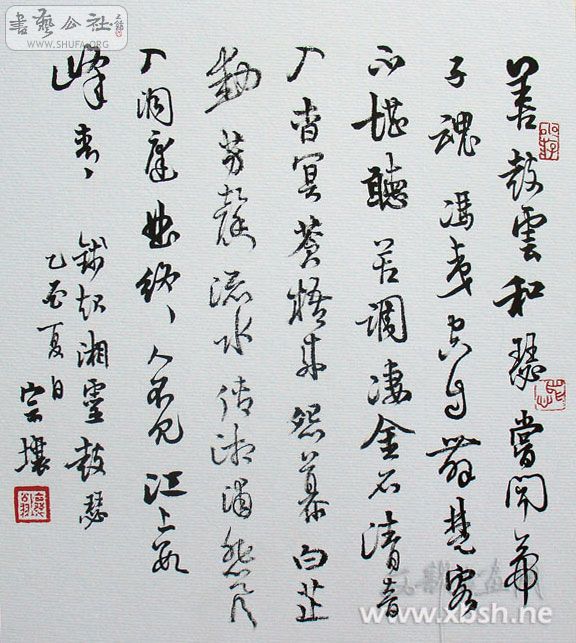 善鼓雲和瑟嘗聞帝
子魂馮夷空自舞楚客
不堪聽苦調凄金石清音
入杳冥蒼梧來怨慕白芷
動芳馨流水传湘浦悲風
入洞庭曲終人不見江上數
峰青
錢起湘靈鼓瑟
乙酉夏日
宗壤
書藝公社
WWW.SHUFA.ORG
www.xbsh.net